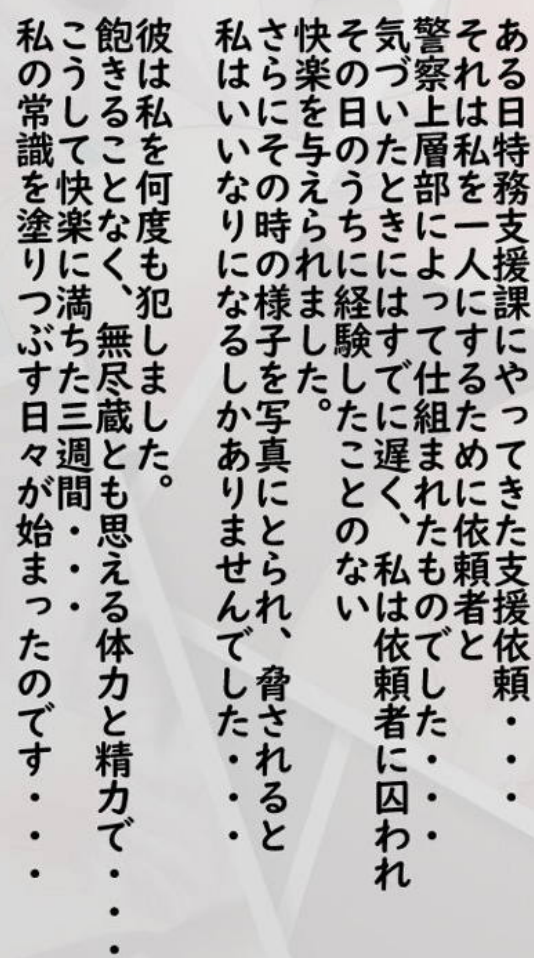 ある日特務支援課にやってきた支援依頼・・・
それは私を一人にするために依頼者と
警察上層部によって仕組まれたものでした・・・
気づいたときにはすでに遅く、私は依頼者に囚われ
その日のうちに経験したことのない
快楽を与えられました。
さらにその時の様子を写真にとられ、脅されると
私はいいなりになるしかありませんでした・・・
彼は私を何度も犯しました。
飽きることなく、無尽蔵とも思える体力と精力で・・・
こうして快楽に満ちた三週間・・・
私の常識を塗りつぶす日々が始まったのです・・・